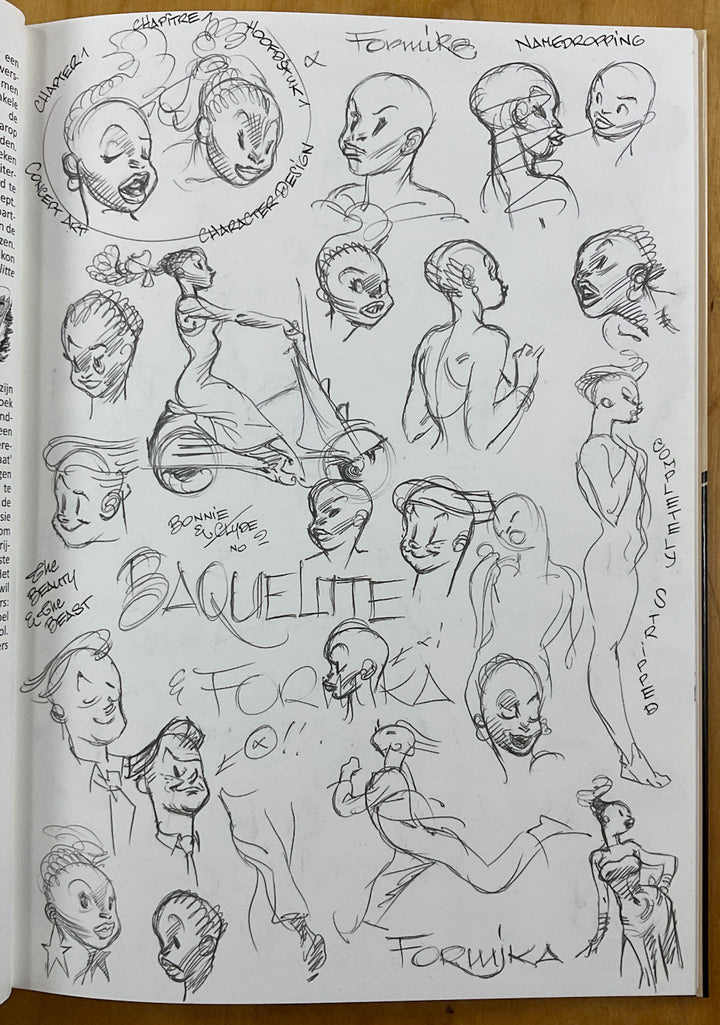 CHAPTER 1
CHAPÎTRE 1
HOOFDSTUK 1
CONCEPT ART
CHARACTER DESIGN
α Formika
NAMEDROPPING
COMPLETELY STRIPPED
BONNIE
& CLYDE
NO 2
The
BEAUTY
& The
BEAST
BAQUELITE
& FORMIKA
α!!
FORMIKA
een
men
akele
de
arop
den.
eken
iter-
d te
sept.
part-
n de
zen.
kon
litte
zijn
oek
nd-
een
ere-
aat'
gen
te
de
sie
om
rij-
ste
Het
wil
ers:
pel
ol.
ers